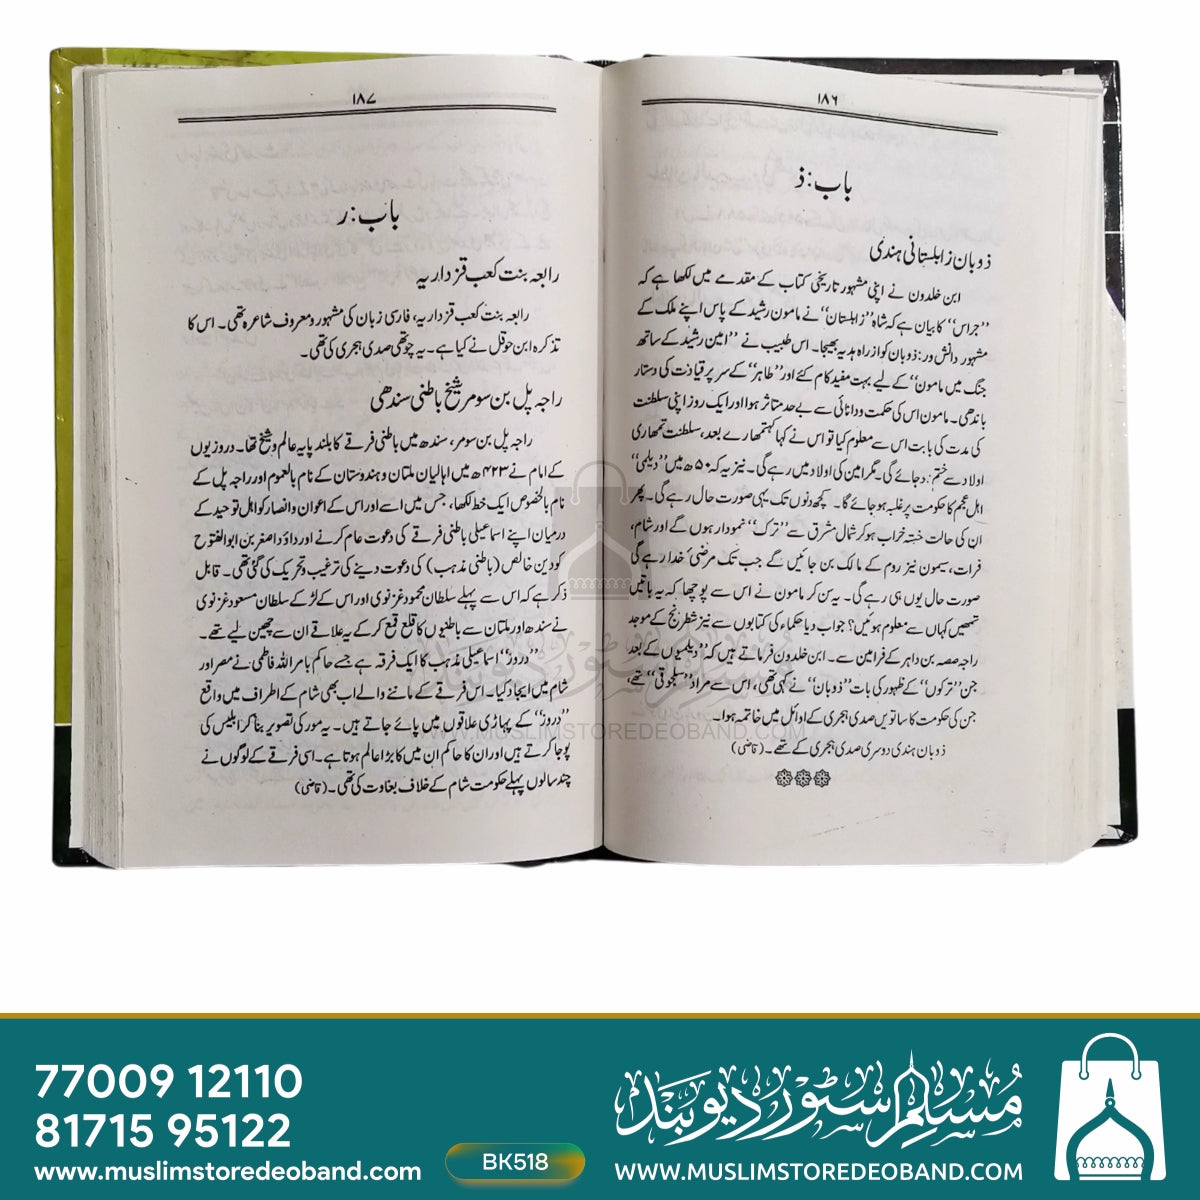 ۱۸۶
باب: ذ
ذوبان زابلستانی ہندی
ابن خلدون نے اپنی مشہور تاریخی کتاب کے مقدمے میں لکھا ہے کہ
”جراس“ کا بیان ہے کہ شاہ ”زابلستان“ نے مامون رشید کے پاس اپنے ملک کے
مشہور دانش ور: ذوبان کو از راہ ہدیہ بھیجا۔ اس طبیب نے ”امین رشید کے ساتھ
جنگ میں مامون“ کے لیے بہت مفید کام کئے اور ”طاہر“ کے سر پر قیادت کی دستار
باندھی۔ مامون اس کی حکمت و دانائی سے بے حد متاثر ہوا اور ایک روز اپنی سلطنت
کی مدت کی بابت اس سے معلوم کیا تو اس نے کہا کہ تمھارے بعد، سلطنت تمھاری
اولاد سے ختم ہو جائے گی۔ مگر امین کی اولاد میں رہے گی۔ نیز یہ کہ ۵۰ھ میں ”دیلمی“
اہل عجم کا حکومت پر غلبہ ہو جائے گا۔ کچھ دنوں تک یہی صورت حال رہے گی۔ پھر
ان کی حالت خستہ خراب ہو کر شمال مشرق سے ”ترک“ نمودار ہوں گے اور شام،
فرات، سیمون نیز روم کے مالک بن جائیں گے جب تک مرضئ خدا رہے گی
صورت حال یوں ہی رہے گی۔ یہ سن کر مامون نے اس سے پوچھا کہ یہ باتیں
تمھیں کہاں سے معلوم ہوئیں؟ جواب دیا حکماء کی کتابوں سے نیز شطرنج کے موجد
راجہ صصہ بن داہر کے فرامین سے۔ ابن خلدون فرماتے ہیں کہ ”دیلمیوں کے بعد
جن ”ترکوں“ کے ظہور کی بات ”ذوبان“ نے کہی تھی، اس سے مراد ”سلجوقی“ تھے،
جن کی حکومت کا ساتویں صدی ہجری کے اوائل میں خاتمہ ہوا۔
ذوبان ہندی دوسری صدی ہجری کے تھے۔ (قاضی)
۱۸۷
باب: ر
رابعہ بنت کعب قزداریہ
رابعہ بنت کعب قزداریہ، فارسی زبان کی مشہور و معروف شاعرہ تھی۔ اس کا
تذکرہ ابن حوقل نے کیا ہے۔ یہ چوتھی صدی ہجری کی تھی۔
راجہ پل بن سومر شیخ باطنی سندھی
راجہ پل بن سومر، سندھ میں باطنی فرقے کا بلند پایہ عالم و شیخ تھا۔ دروزیوں
کے امام نے ۴۲۳ھ میں اہالیان ملتان و ہندوستان کے نام بالعموم اور راجہ پل کے
نام بالخصوص ایک خط لکھا، جس میں اسے اور اس کے اعوان و انصار کو اہل توحید کے
درمیان اپنے اسماعیلی باطنی فرقے کی دعوت عام کرنے اور داؤد اصغر بن ابو الفتوح
کو دین خالص (باطنی مذہب) کی دعوت دینے کی ترغیب و تحریک کی گئی تھی۔ قابل
ذکر ہے کہ اس سے پہلے سلطان محمود غزنوی اور اس کے لڑکے سلطان مسعود غزنوی
نے سندھ اور ملتان سے باطنیوں کا قلع قمع کر کے یہ علاقے ان سے چھین لیے تھے۔
”دروز“ اسماعیلی مذہب کا ایک فرقہ ہے جسے حاکم بامر اللہ فاطمی نے مصر اور
شام میں ایجاد کیا۔ اس فرقے کے ماننے والے اب بھی شام کے اطراف میں واقع
”دروز“ کے پہاڑی علاقوں میں پائے جاتے ہیں۔ یہ مور کی تصویر بنا کر ابلیس کی
پوجا کرتے ہیں اور ان کا حاکم ان میں کا بڑا عالم ہوتا ہے۔ اسی فرقے کے لوگوں نے
چند سالوں پہلے حکومت شام کے خلاف بغاوت کی تھی۔ (قاضی)
مسلم سٹور دیوبند
WWW.MUSLIMSTOREDEOBAND.COM
77009 12110
81715 95122
www.muslimstoredeoband.com
BK518
مسلم سٹور دیوبند
WWW.MUSLIMSTOREDEOBAND.COM